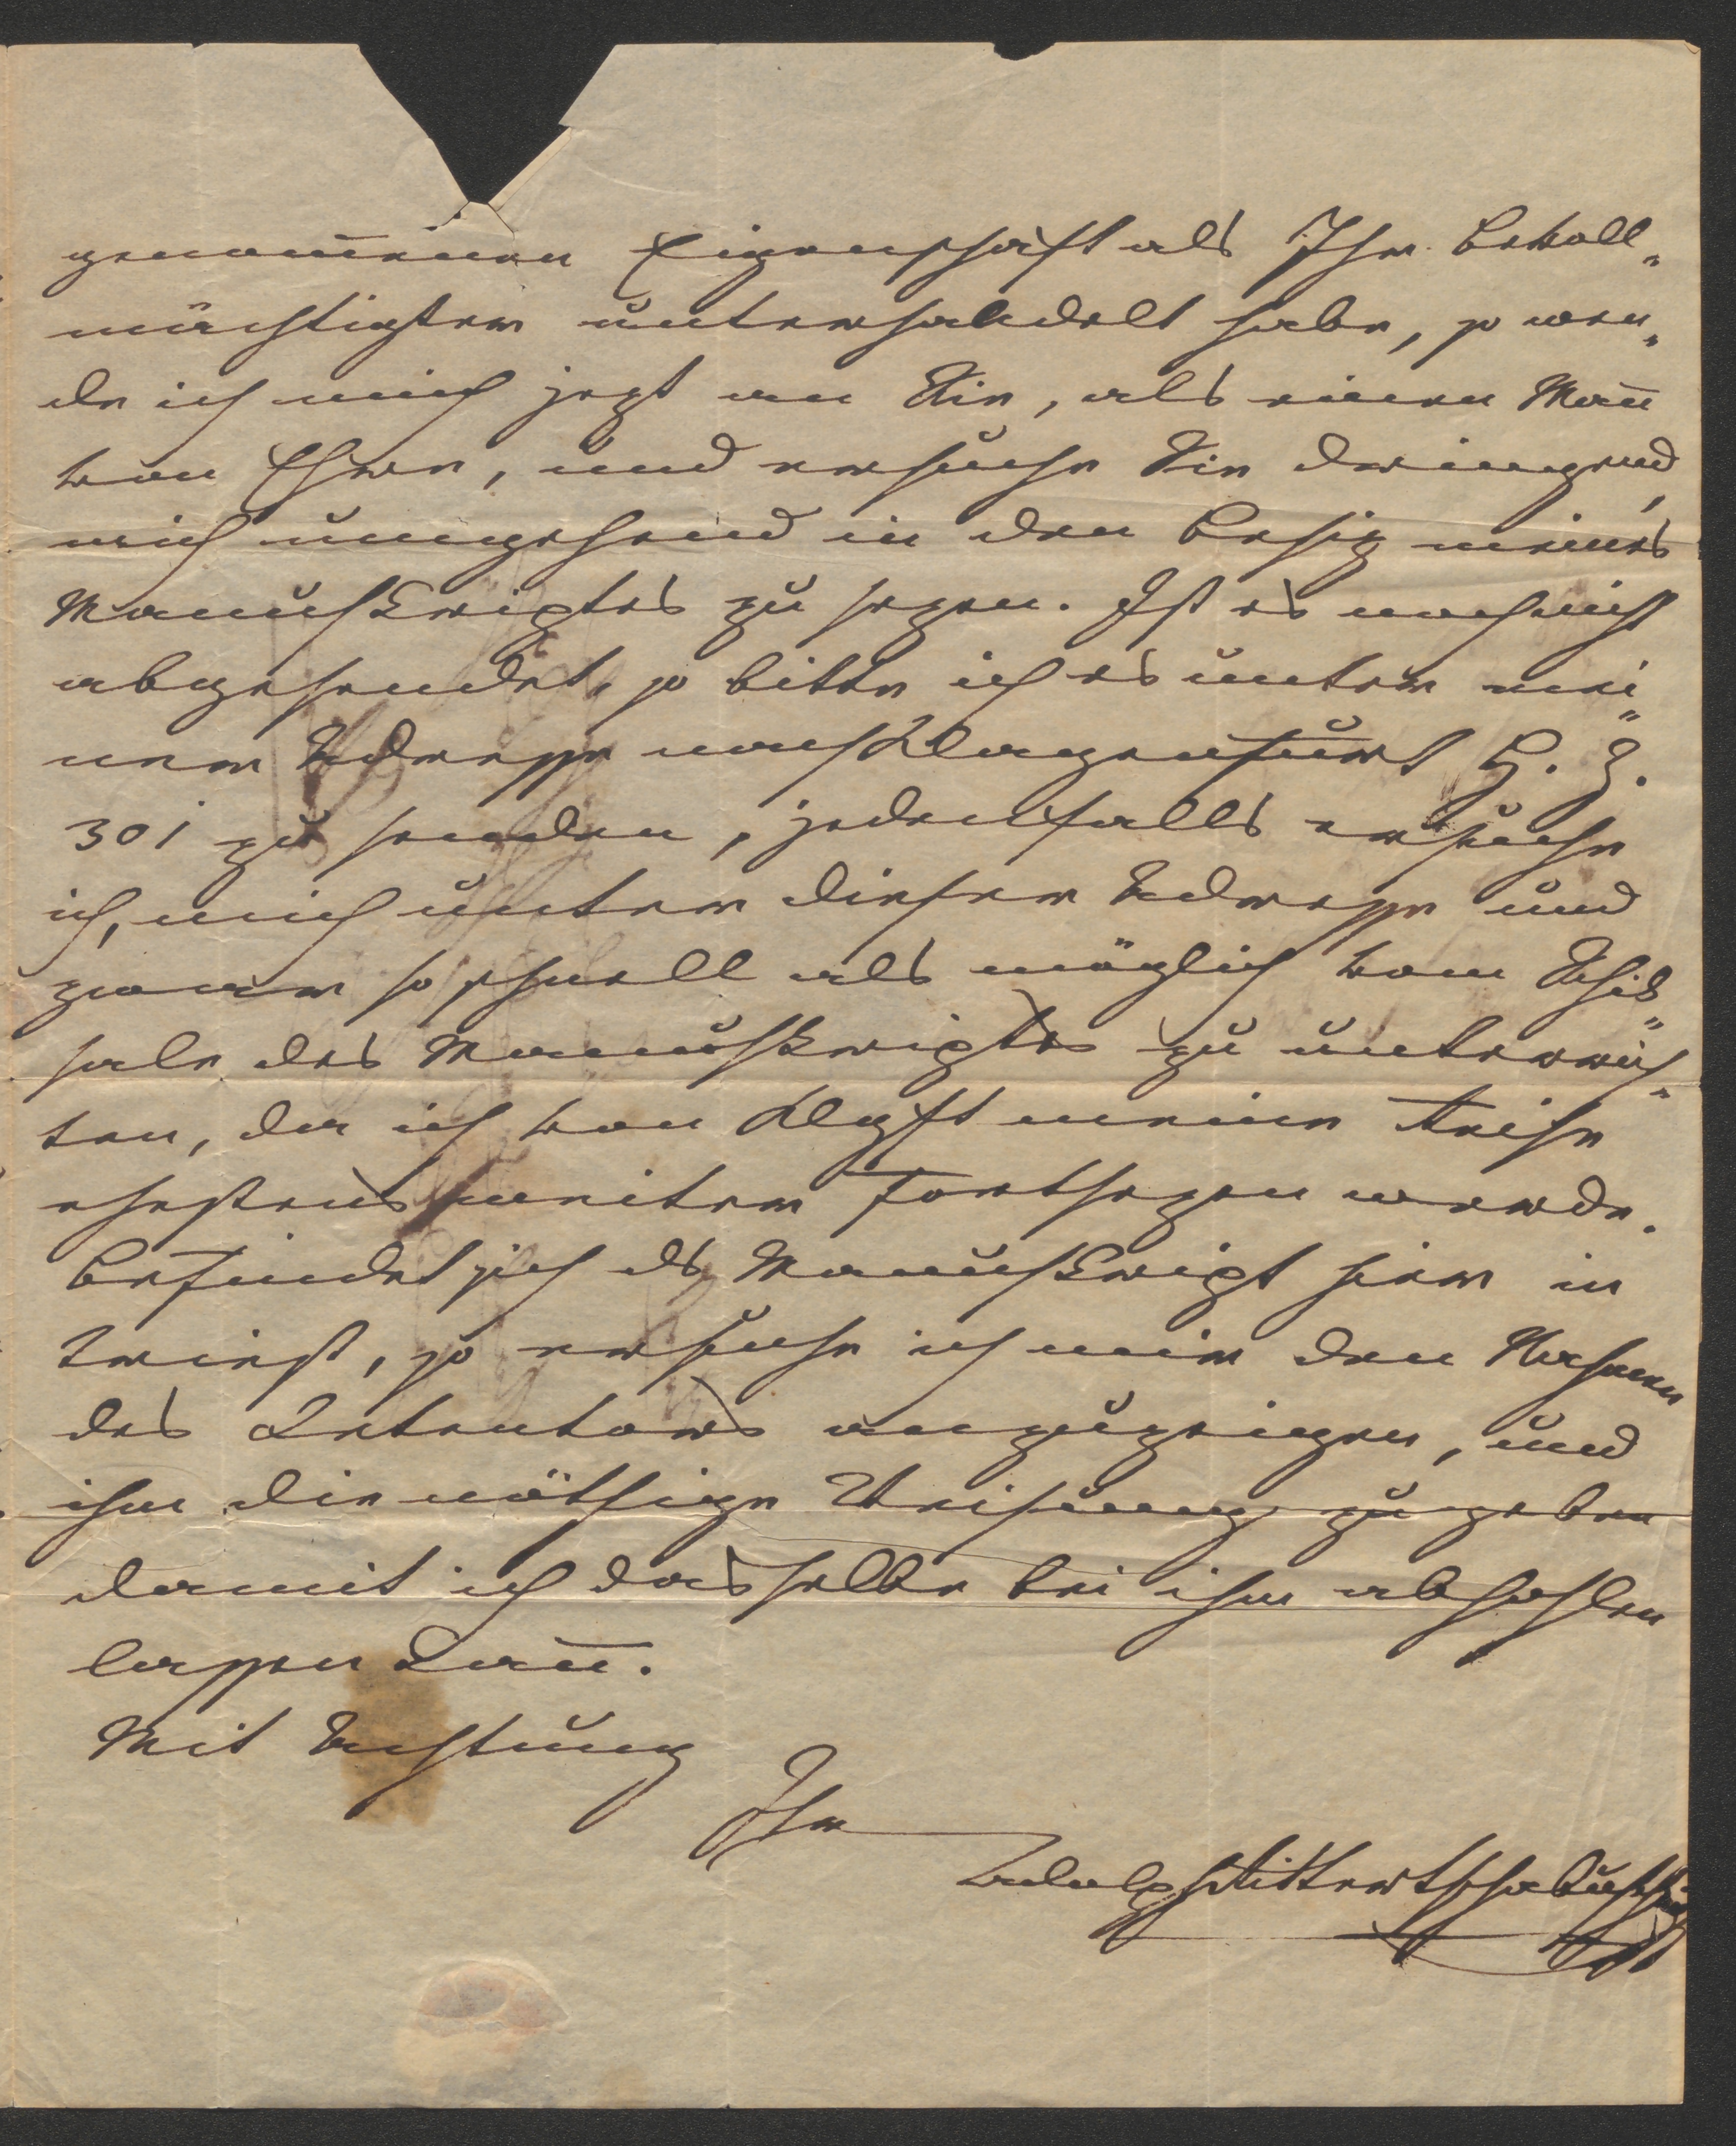 genom̅enen Eigenschaft als Ihr Bevoll„
mächtigter unterhandelt habe, so wen„
de ich mich jezt an Sie, als einen Man̅
von Ehre, und ersuche Sie dringend,
mich umgehend in den Besiz meines
Manuskriptes zu sezen. Ist es noch nicht
abgesendet, so bitte ich es unter mei„
ner Adresse nach Klagenfurt H. Z.
301 zu senden, jedenfalls ersuche
ich, mich unter dieser Adresse und
zwar so schnell als möglich vom Schik„
sale des Manuskriptes zu unterrich„
ten, da ich von Klgft meine Reise
ehestens weiter fortsezen werde.
Befindet sich ds Manuskript hier in
Triest, so ersuche ich mir den Nahmen
des Detentors anzuzeigen, und
ihm die nöthige Weisung zu geben
damit ich dasselbe bei ihm abhohlen
lassen kan̅.
Mit Achtung
Ihr
Adolf Ritter